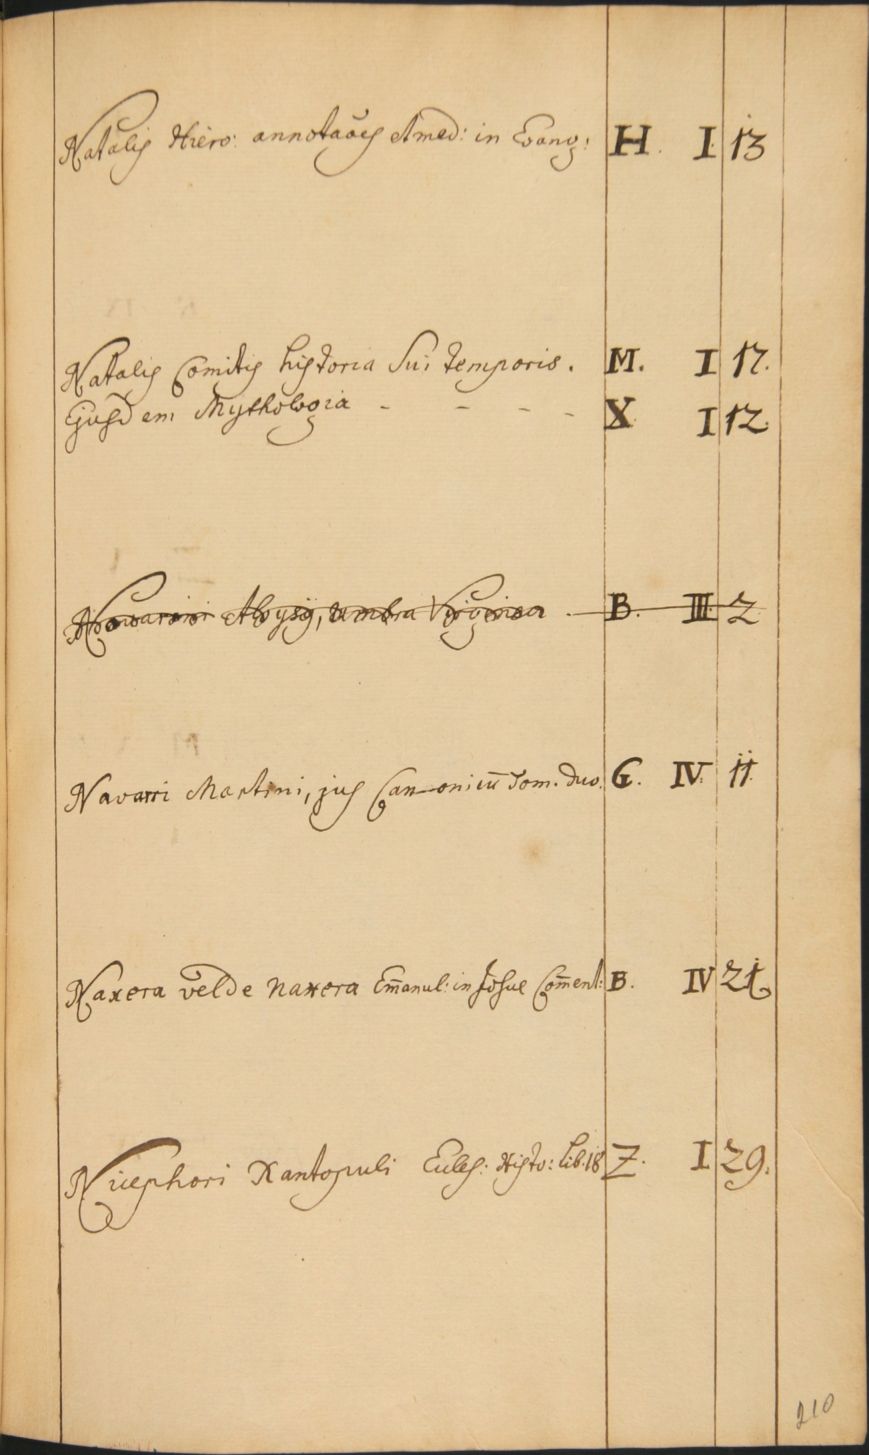 Natalis Hiero: annotaões et med: in Evang: H. I. 13
Natalis Comitis historia Sui temporis. M. I 17.
Ejusdem Mythologia - - - - X I 12.
Novarini Aloysij, umbra Virginea. B. III 2
Navarri Martini, jus Canonicū Tom. duo. G. IV. 11.
Naxera vel de naxera Em̄anul: in Josue Com̄ent: B. IV 24
Nicephori Xantopuli Eccles: Histo: Lib. 18 Z. I 29.
210